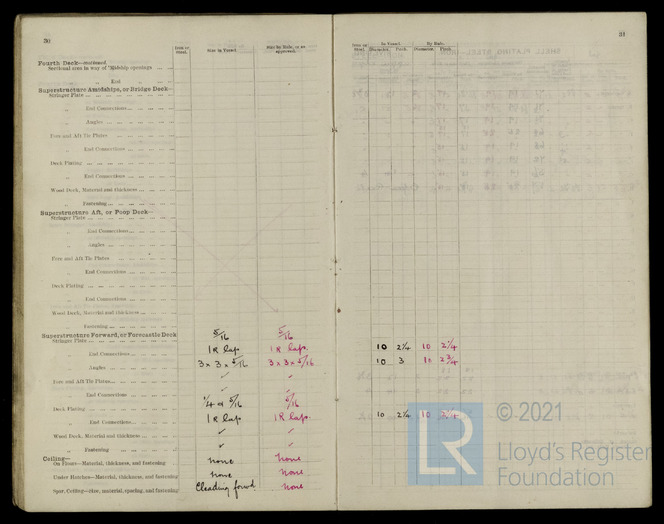 30
Iron or Steel. Size in Vessel. Size by Rule, or as approved.
Fourth Deck—continued
Sectional area in way of 'Midship openings
" End
Superstructure Amidships, or Bridge Deck—
Stringer Plate
" End Connections
" Angles
Fore and Aft Tie Plates
" End Connections
Deck Plating
" End Connections
Wood Deck, Material and thickness
" Fastening
Superstructure Aft, or Poop Deck—
Stringer Plate
" End Connections
" Angles
Fore and Aft Tie Plates
" End Connections
Deck Plating
" End Connections
Wood Deck, Material and thickness
" Fastening
Superstructure Forward, or Forecastle Deck
Stringer Plate 5/16 5/16
" End Connections 1 R lap 1 R lap.
" Angles 3 x 3 x 5/16 3 x 3 x 5/16
Fore and Aft Tie Plates ✓ ✓
" End Connections ✓
Deck Plating 1/4 & 5/16 5/16
" End Connections 1 R lap. 1 R lap.
Wood Deck, Material and thickness ✓ ✓
" Fastening ✓ ✓
Ceiling—
On Floors—Material, thickness, and fastening none none
Under Hatches—Material, thickness, and fastening none none
Spar Ceiling—size, material, spacing, and fastening Cleading forwd none
31
Iron or Steel. In Vessel. By Rule.
Diameter. Pitch. Diameter. Pitch.
10 2 1/4 10 2 1/4
10 3 10 2 3/4
10 2 1/4 10 2 1/4
LR
© 2021
Lloyd's Register
Foundation